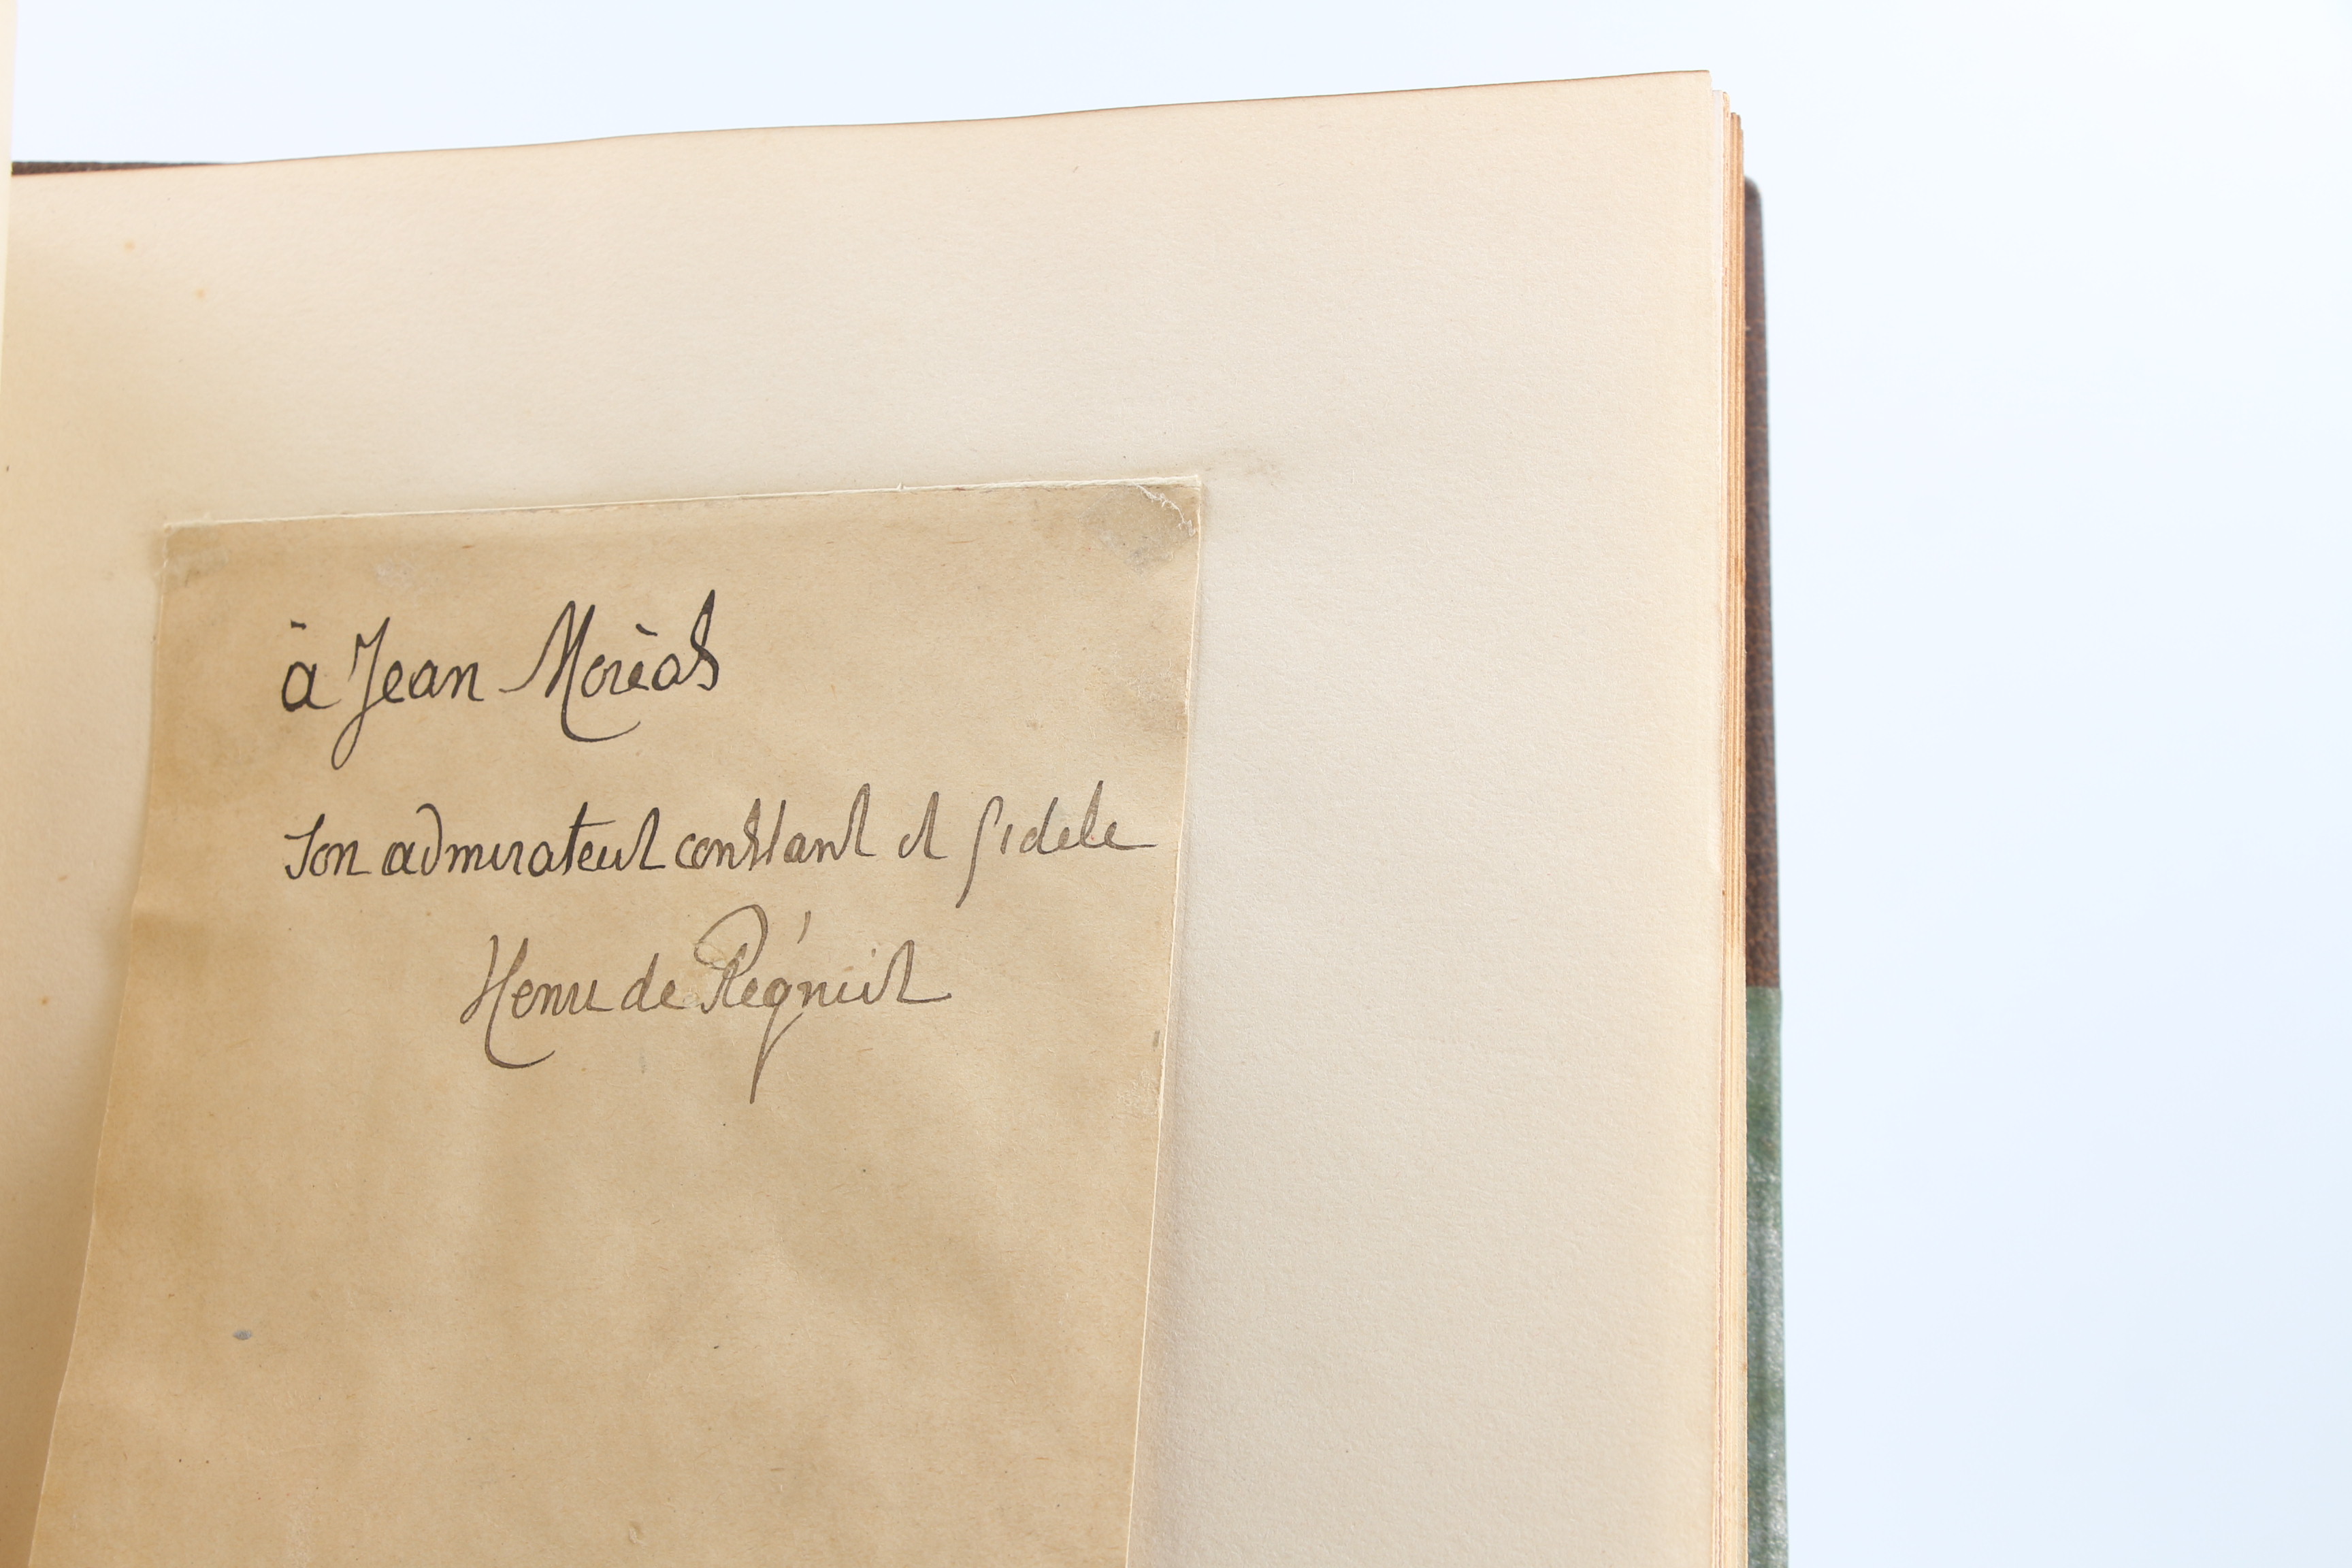 à Jean Moréas
son admirateur constant et fidele
Henri de Régnier